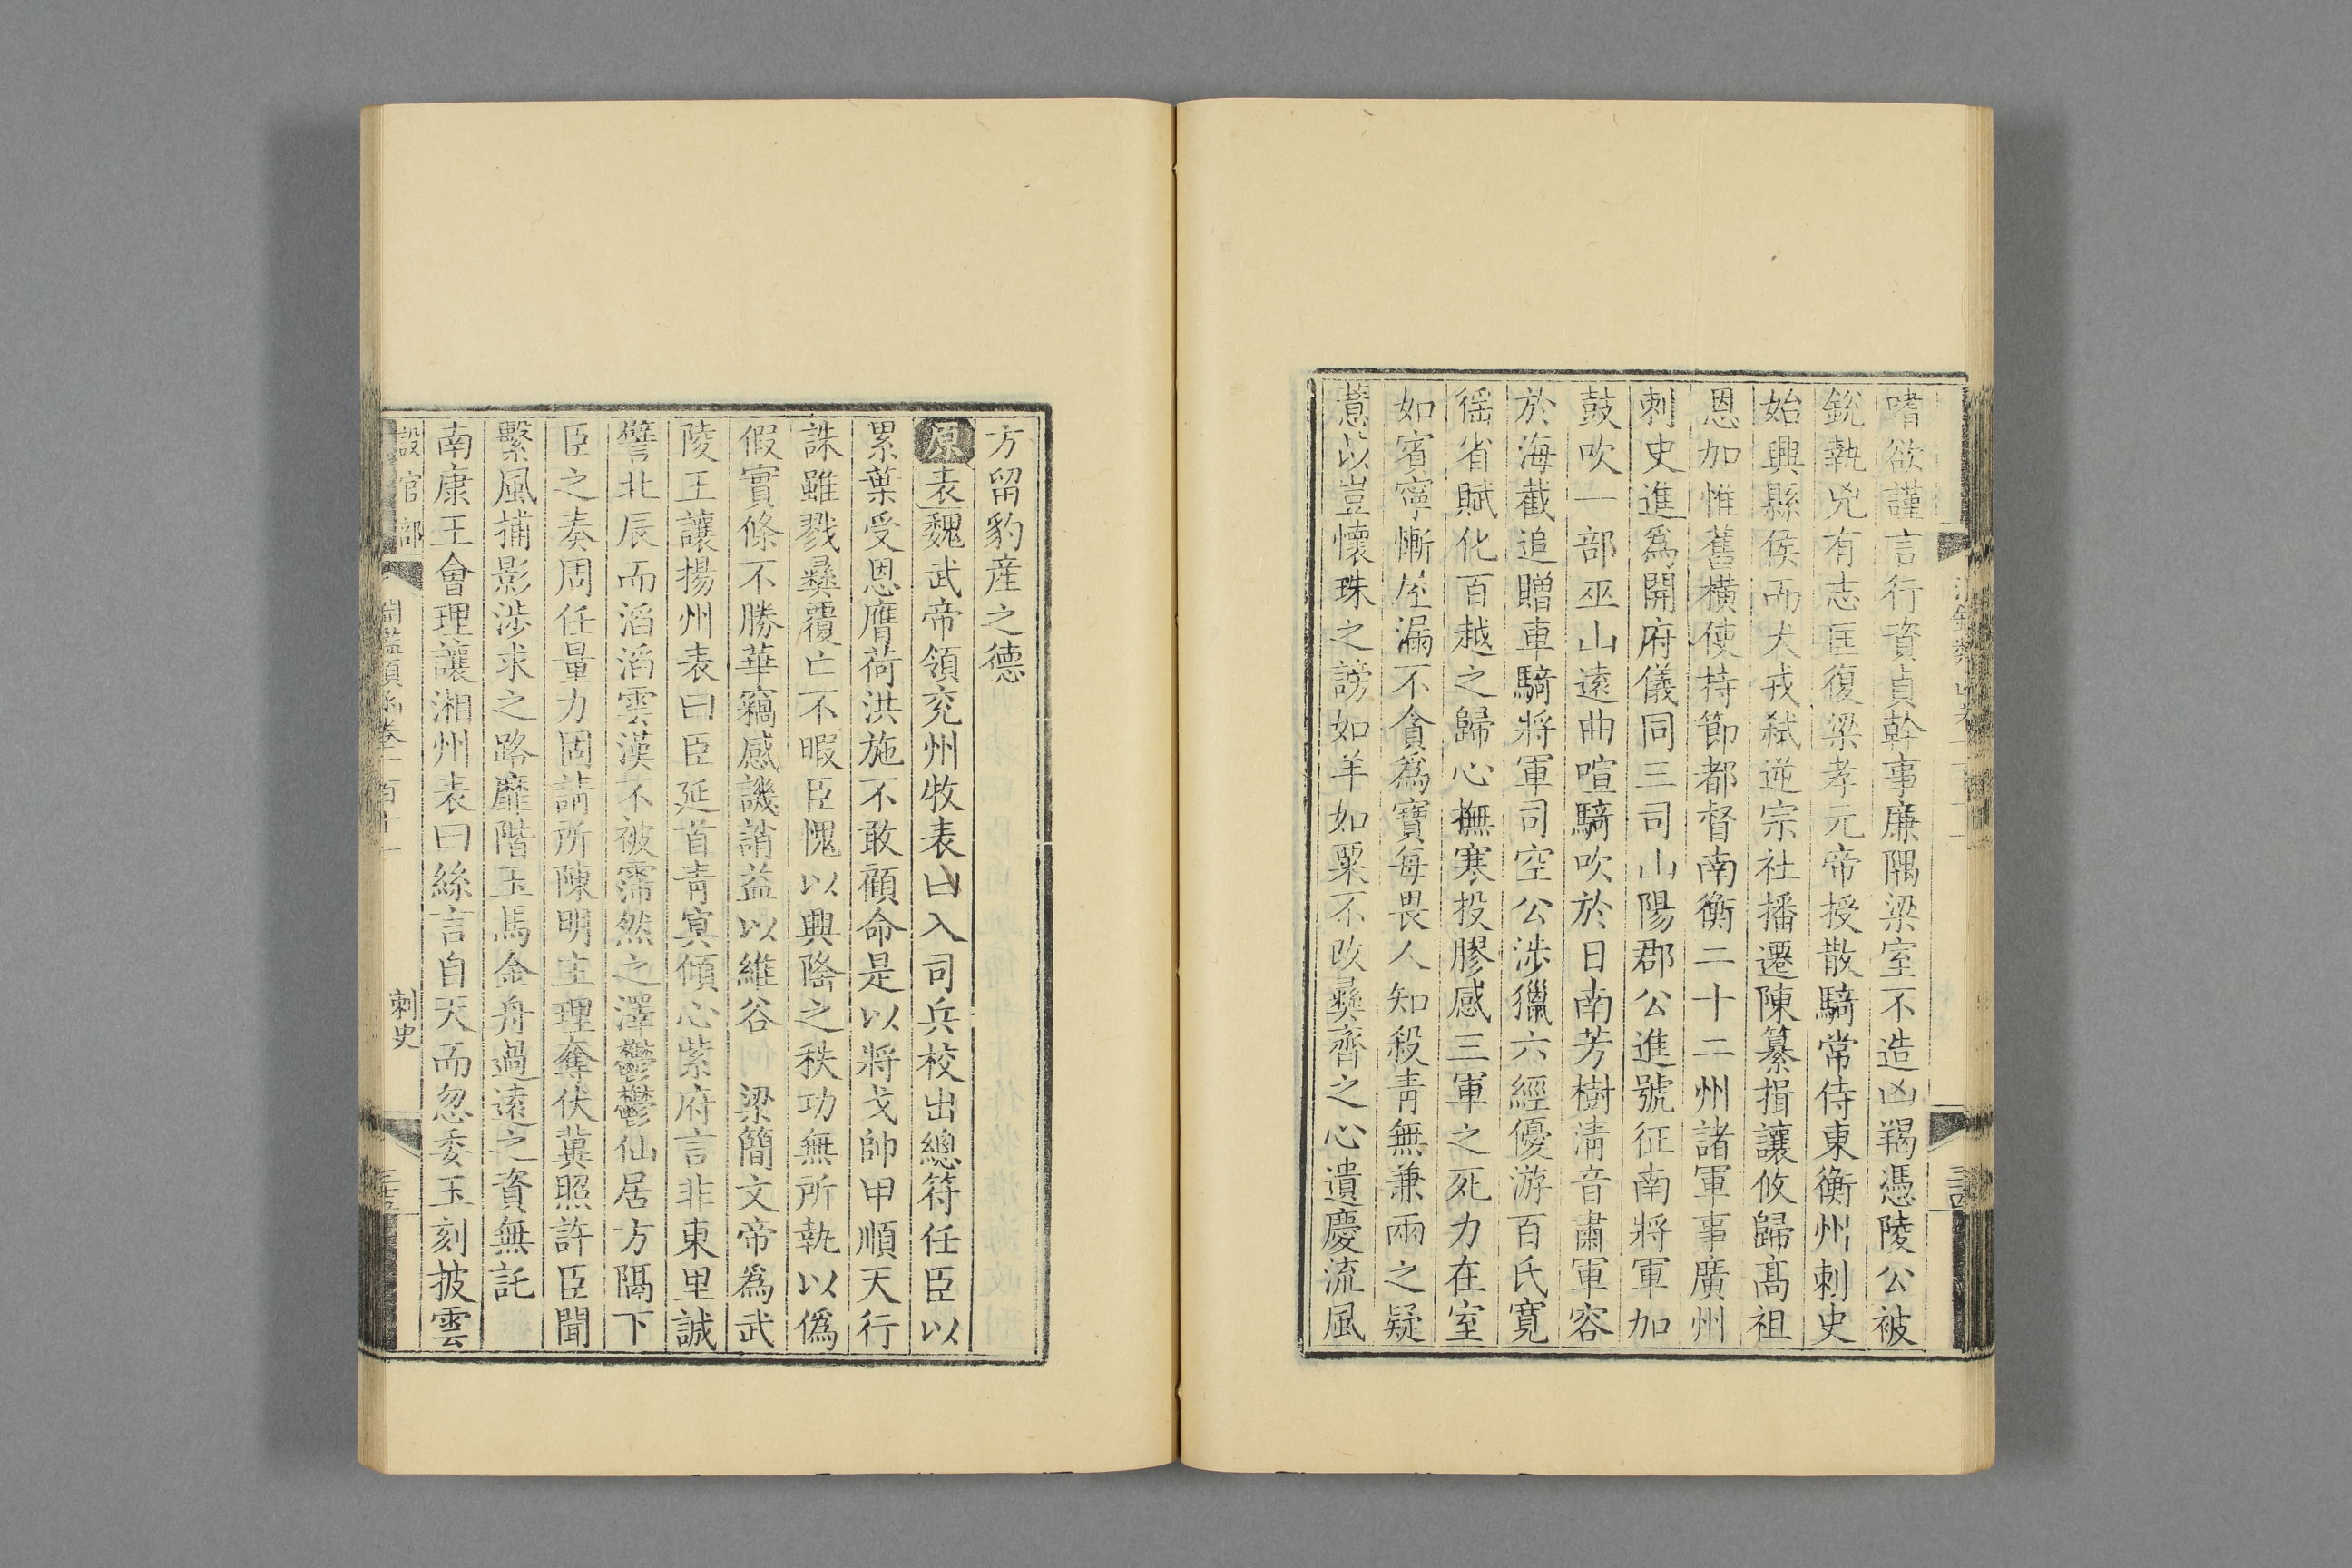 嗜欲謹言行資貞幹事廉隅梁室不造凶羯憑陵公被
銳執兇有志匡復梁孝元帝授散騎常侍東衡州刺史
始興縣侯而犬戎弑逆宗社播遷陳纂揖讓攸歸髙祖
恩加惟舊横使持節都督南衡二十二州諸軍事廣州
刺史進爲開府儀同三司山陽郡公進號征南將軍加
鼓吹一部巫山遠曲喧騎吹於日南芳樹清音肅軍容
於海截追贈車騎將軍司空公涉獵六經優游百氏寛
徭省賦化百越之歸心撫寒投膠感三軍之死力在室
如賓寧慚屋漏不貪爲寶每畏人知殺青無兼兩之疑
薏苡豈懷珠之謗如羊如粟不改彞齊之心遺慶流風
方留豹産之德
原表魏武帝領兖州牧表曰入司兵校出總符任臣以
累葉受恩膺荷洪施不敢顧命是以將戈帥甲順天行
誅雖戮彞覆亡不暇臣愧以興隆之秩功無所執以僞
假實條不勝華竊感譏誚益以維谷 梁簡文帝爲武
陵王讓揚州表曰臣延首青㝠傾心紫府言非東里誠
譬北辰而滔滔雲漢不被霈然之澤鬱鬱仙居方隔下
臣之奏周任量力固請所陳明主理奪伏冀照許臣聞
繫風捕影涉求之路靡階玉馬金舟過遠之資無託
南康王會理讓湘州表曰絲言自天而忽委玉刻披雲
設官部
淵鑑類函卷一百十一
刺史